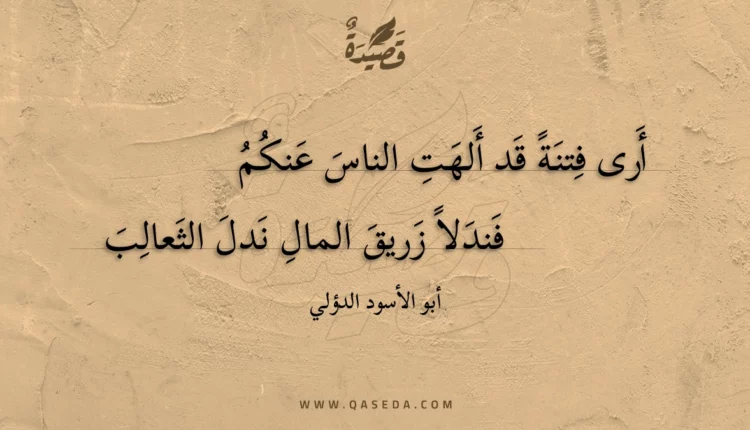 قَصِيدَةٌ
أَرى فِتنَةً قَد أَلهَتِ الناسَ عَنكُمُ
فَندَلاً زَريقَ المالِ نَدلَ الثَعالِبَ
أبو الأسود الدؤلي
WWW.QASEDA.COM